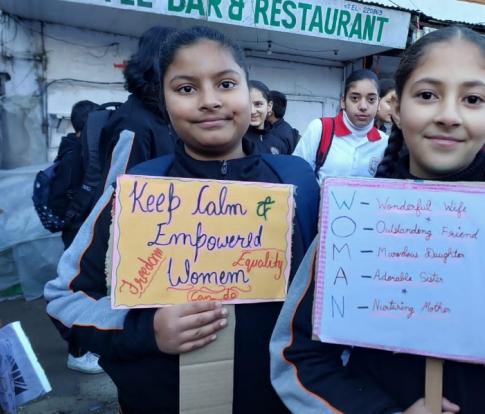 BAR & RESTAURANT
Keep Calm &
Empowered
Women
Freedom
Equality
Can do
W - Wonderful Wife
O - Outstanding Friend
M - Marvelous Daughter
A - Adorable Sister
N - Nurturing Mother